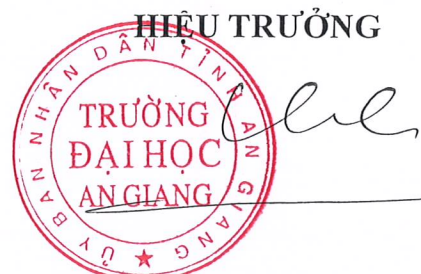 HIỆU TRƯỞNG
ỦY BAN NHÂN DÂN TỈNH AN GIANG
TRƯỜNG
ĐẠI HỌC
AN GIANG